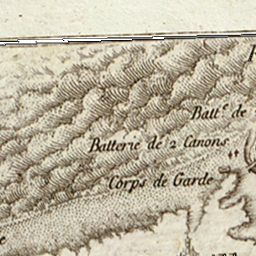 Batt.e de
Batterie de 2 Canons
Corps de Garde